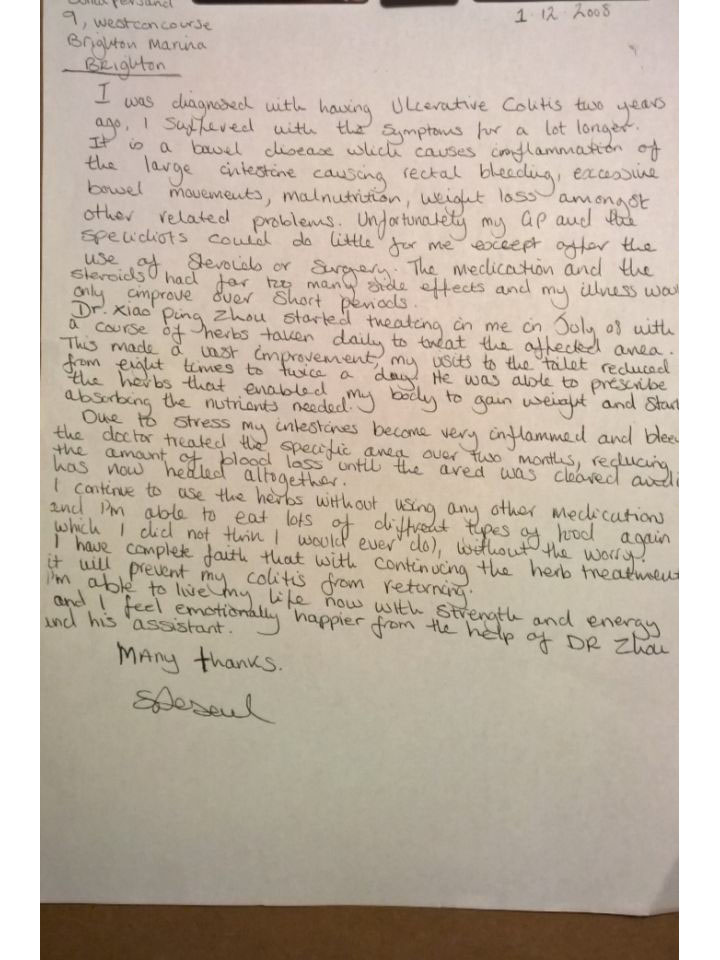 1.12.2008
9, westconcourse
Brighton Marina
Brighton
I was diagnosed with having Ulcerative Colitis two years
ago, I suffered with the symptoms for a lot longer.
It is a bowel disease which causes imflammation of
the large intestine causing rectal bleeding, excessive
bowel movements, malnutrition, weight loss amongst
other related problems. Unfortunately my GP and the
specidiots could do little for me except offer the
use of Steroids or Surgery. The medication and the
steroids had far too many side effects and my illness
only improve over short periods.
Dr. Xiao Ping Zhou started treating in me in July 08 with
a course of herbs taken daily to treat the affected area.
This made a vast improvement, my visits to the toilet reduced
from eight times to twice a day. He was able to prescribe
the herbs that enabled my body to gain weight and start
absorbing the nutrients needed.
Due to stress my intestines become very inflammed and
the doctor treated the specific area over two months, reducing
the amount of blood loss until the area was cleared
has now healed altogether.
I continue to use the herbs without using any other medications
and I'm able to eat lots of diffrent types of food again
which I did not thin I would ever do), without the worry.
I have complete faith that with continuing the herb treatment
it will prevent my colitis from returning.
I'm able to live my life now with strength and energy
and I feel emotionally happier from the help of DR Zhou
and his assistant.
MANY thanks.